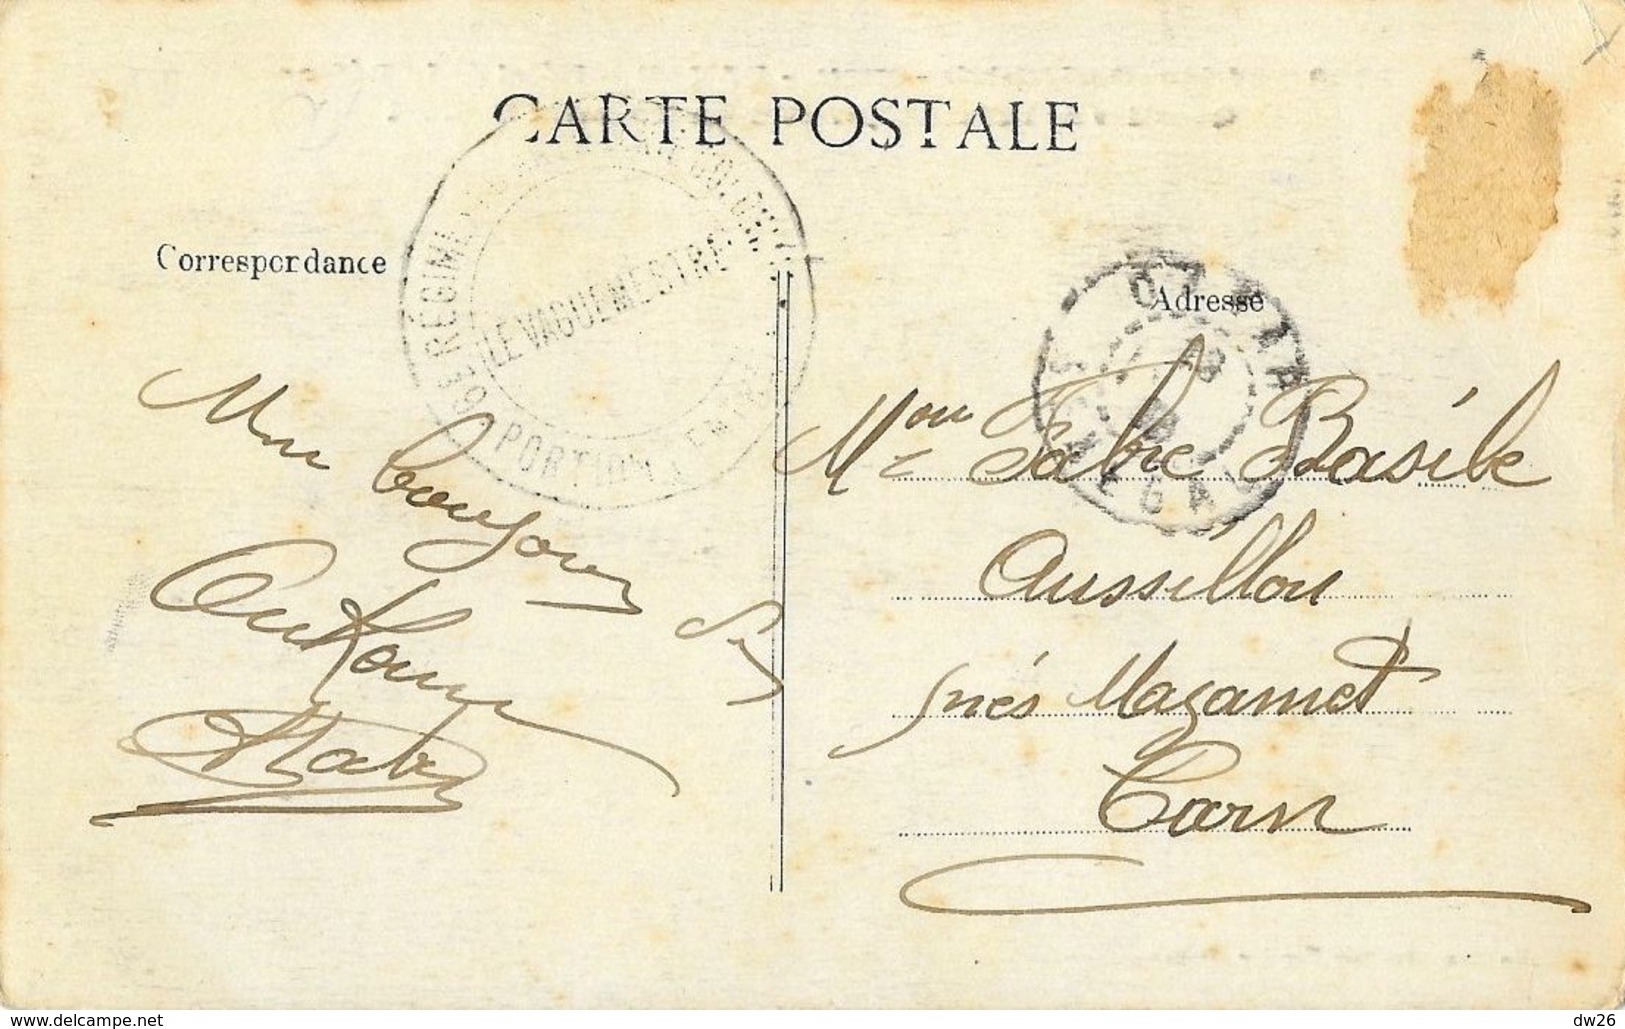 CARTE POSTALE
Correspondance
Adresse
LE VAGUEMESTRE
PORTION CENTRALE
Mon bonjour
Antoine
Mon Fabre Basile
Aussillon
près Mazamet
Tarn
www.delcampe.net
dw26